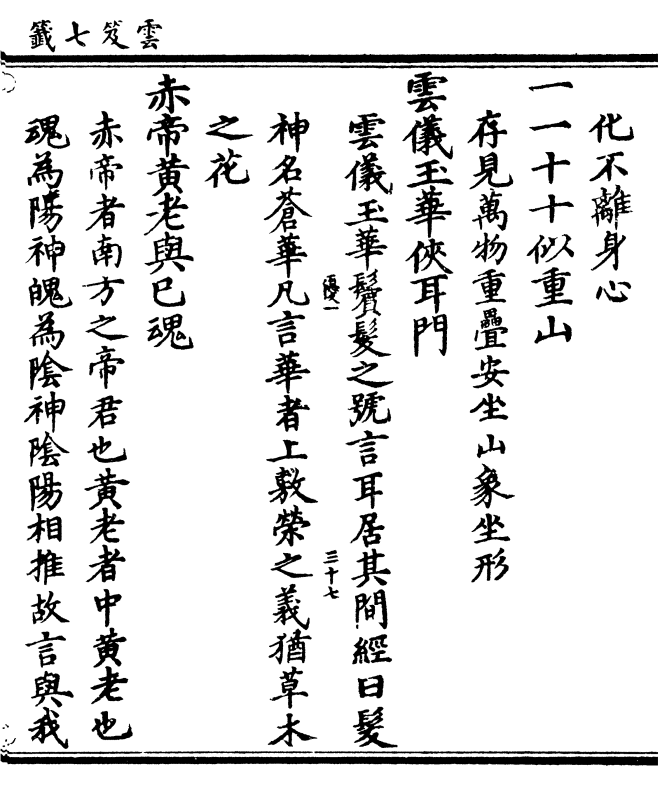 雲笈七籤
化不離身心
一一十十似重山
存見萬物重疊安坐山象坐形
雲儀玉華俠耳門
雲儀玉華鬢髮之號言耳居其間經曰髮
優一
三十七
神名蒼華凡言華者上敷榮之義猶草木
之花
赤帝黃老與巳魂
赤帝者南方之帝君也黃老者中黃老也
魂為陽神魄為陰神陰陽相推故言與我